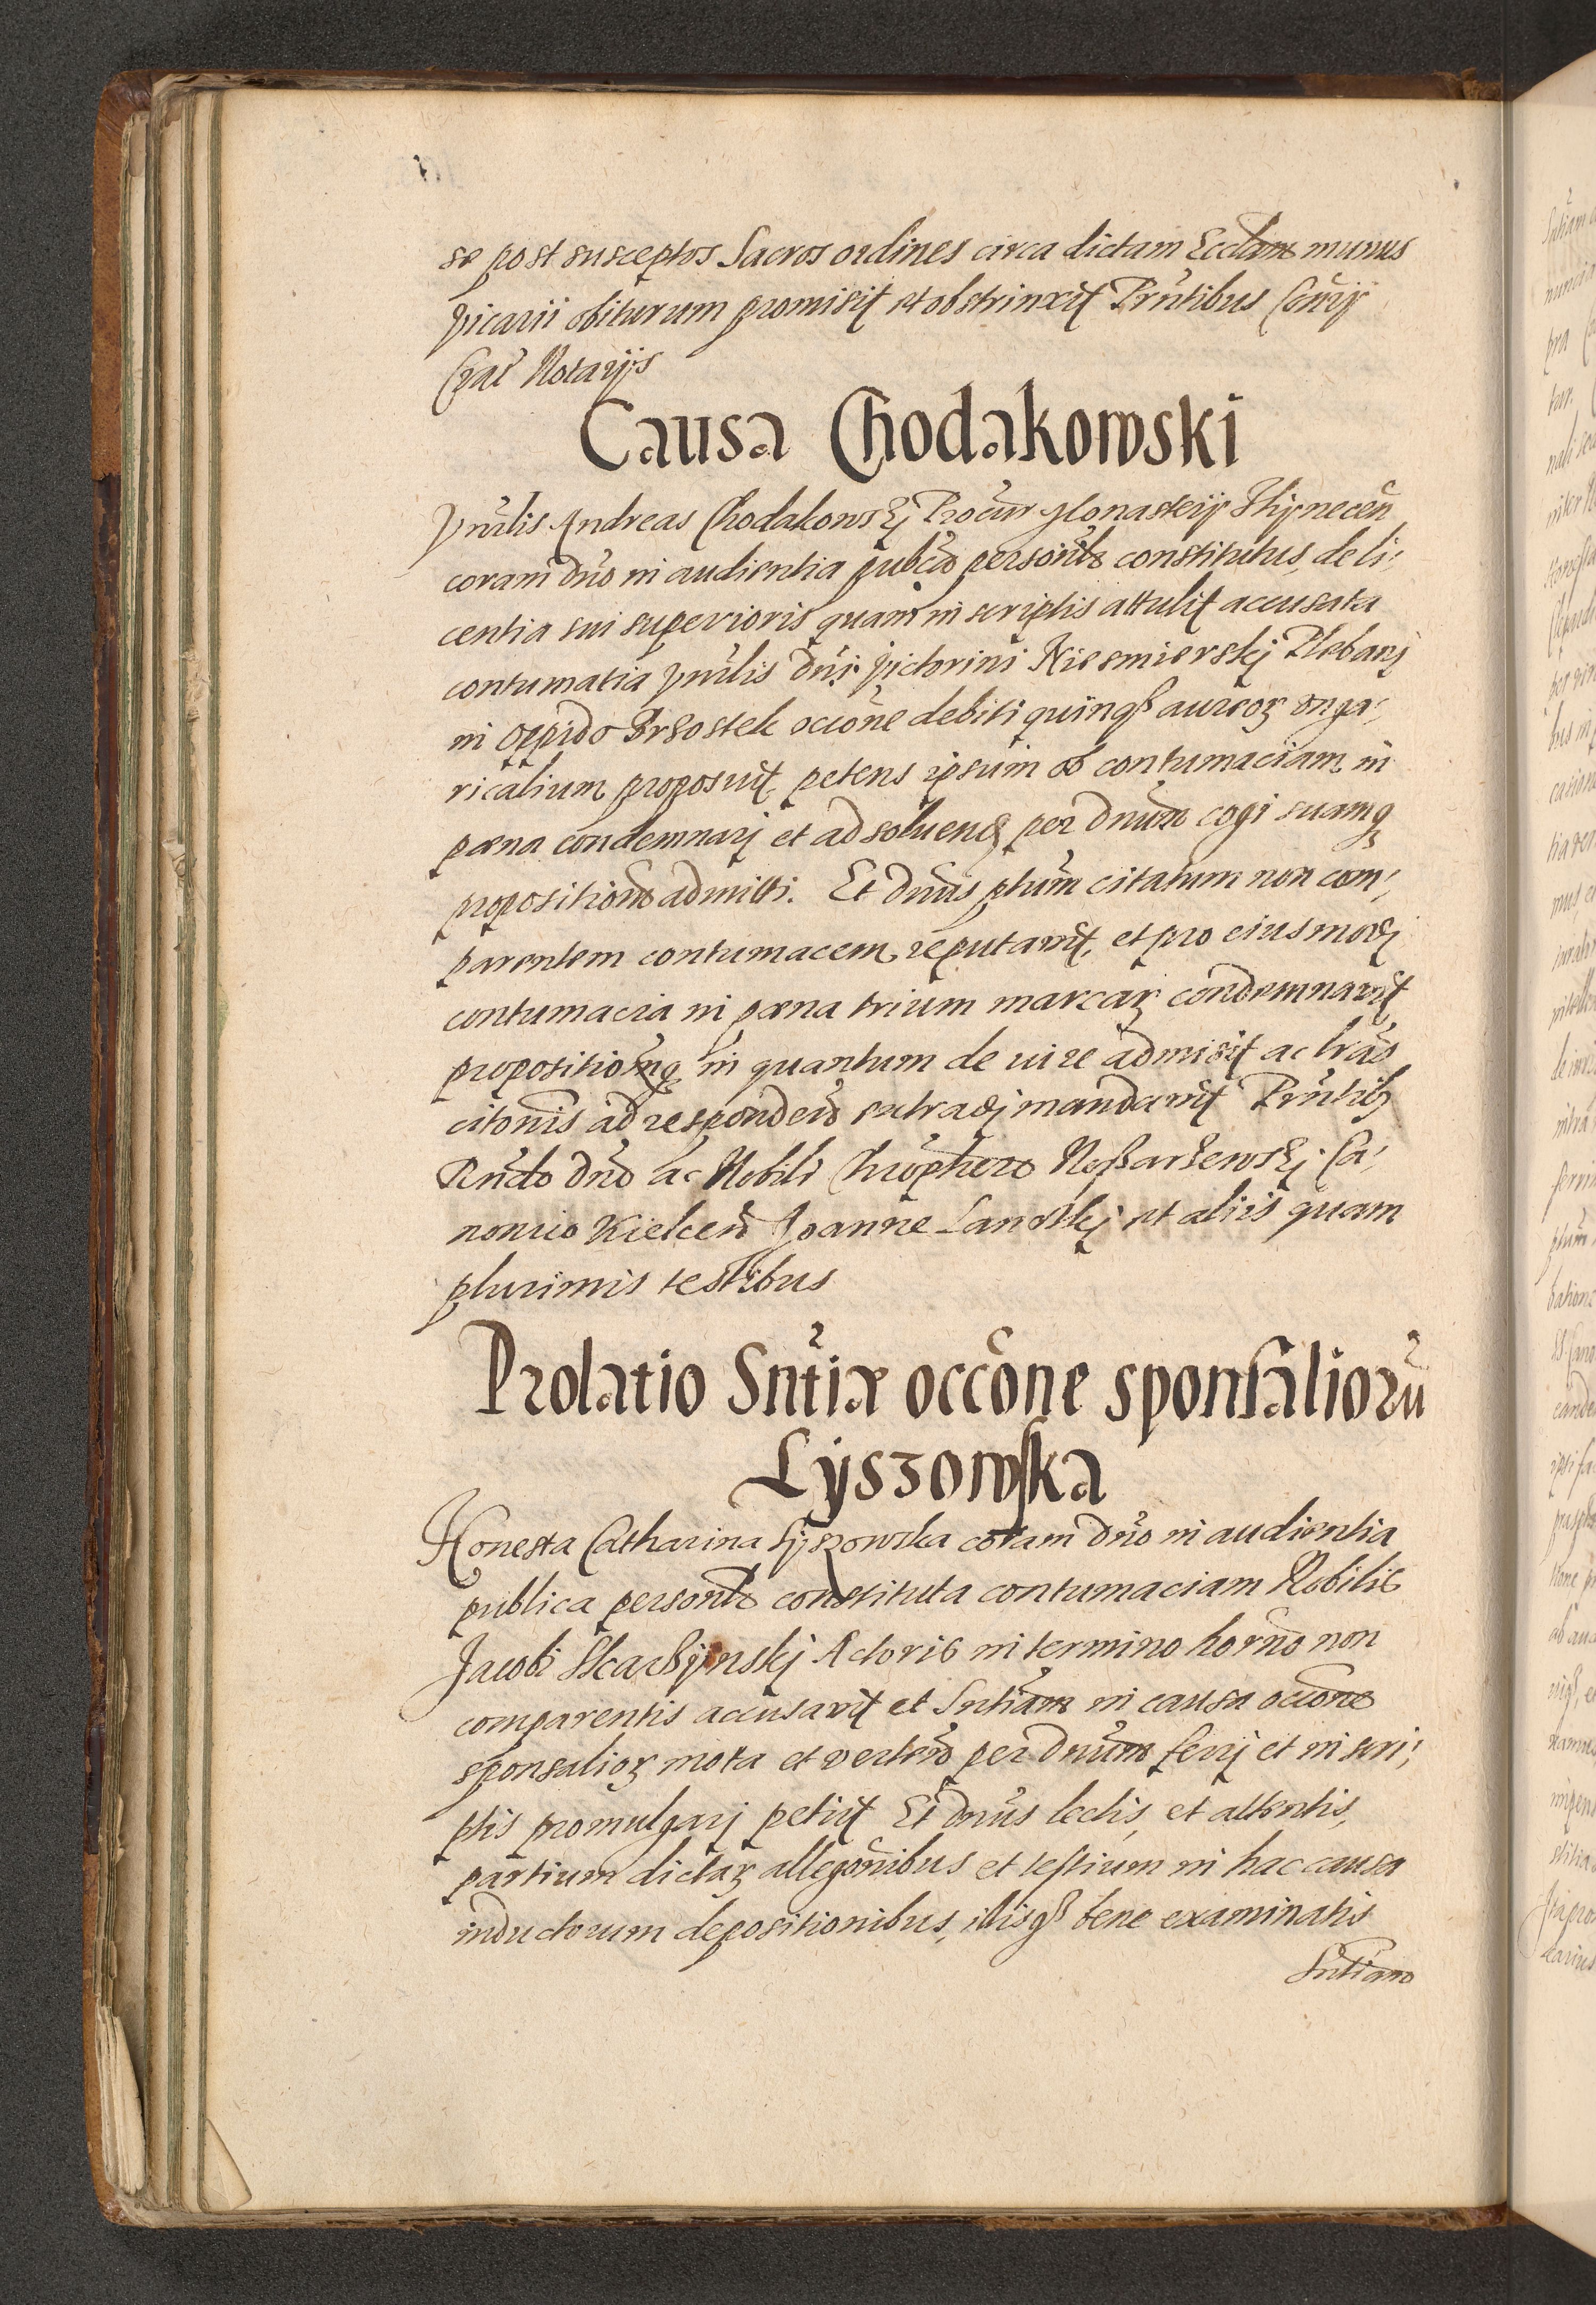 se post susceptos Sacros ordines circa dictam Ecclam munus
vicarii obiturum promisit et obstrinxit Pntibus
Notarijs
Causa Chodakowski
Vnrlis Andreas Chodakowskj Procur Monasterij Thÿnecen
coram dno in audientia publca personlr constitutus, de li:
centia sui superioris quam in scriptis attulit accusata
contumatia Vnrlis dni Victorini Niesmierskj Plebanj
in oppido Brzostek occone debiti quinqз aureoꝝ onga:
ricalium proposuit, petens ipsum ob contumaciam in
pæna condemnarj et ad soluend per dnum cogi suamqꝫ
propositionem admitti. Et dnus ptum citatum non com:
parentem contumacem reputavit, et pro eiusmodj
contumacia in pæna trium marcaꝝ condemnavit
propositionemqꝫ in quantum de iure admisit ac lras
citonis ad respondend extradj mandavit Pntibꝫ
Rndo dno ac Nobili Chrophoro Noßarzewskj Ca:
nonico Kielcen Joanne et aliis quam
plurimis testibus
Prolatio Sntiæ occone sponsalioru
Lyszowska
Honesta Catharina Lyszowska coram dno in audientia
publica personlr constituta contumaciam Nobilis
Jacobi Actoris in termino horno non
comparentis accusavit et Sntiam in causa occone
sponsalioꝝ mota et verten per dnum ferrj et in scri:
ptis promulgarj petiit Et dnus lectis, et attentis,
partium dictaꝝ allegonibus et testium in hac causa
inductorum depositionibus, illisqз bene examinatis
Sntiam